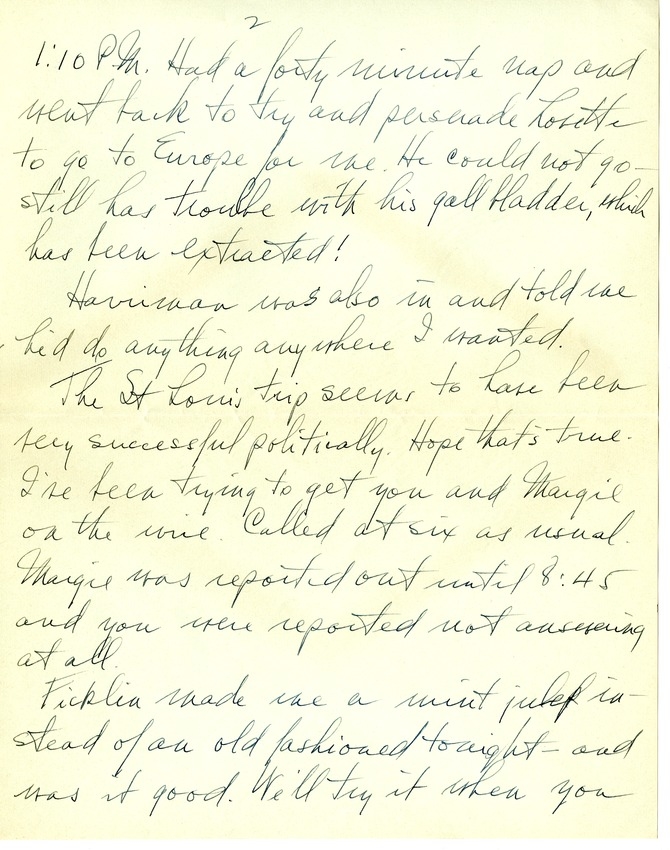 2
1:10 P.M. Had a forty minute nap and
went back to try and persuade Lovette
to go to Europe for me. He could not go—
still has trouble with his gall bladder, which
has been extracted!
Harriman was also in and told me
he'd do anything anywhere I wanted.
The St Louis trip seems to have been
very successful politically. Hope that's true.
I've been trying to get you and Margie
on the wire. Called at six as usual.
Margie was reported out until 8:45
and you were reported not answering
at all.
Ficklin made me a mint julep in-
stead of an old fashioned tonight—and
was it good. We'll try it when you